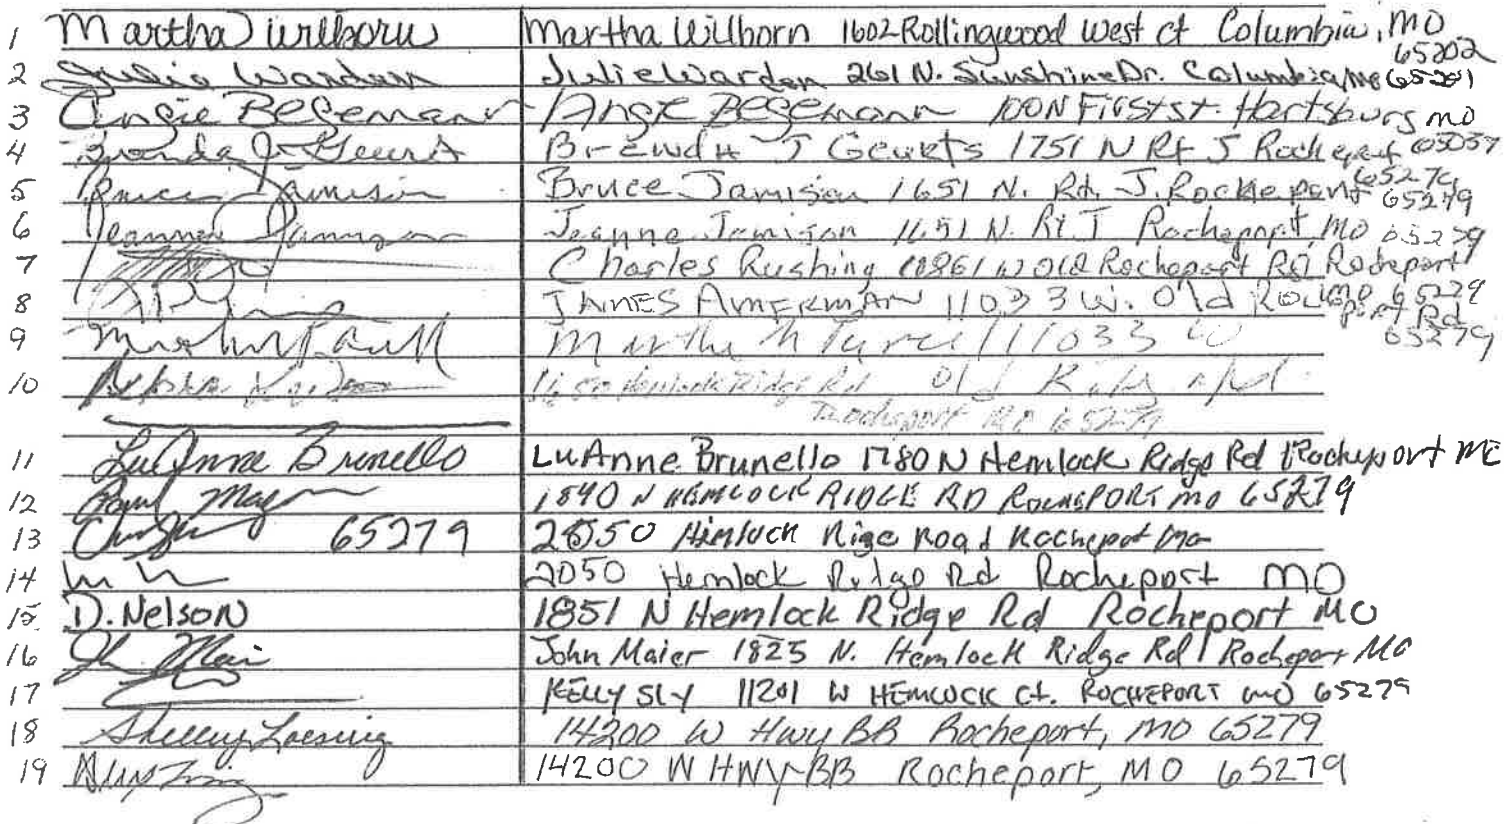 1 Martha Wilborn Martha Wilborn 1602 Rollingwood West ct Columbia, MO 65202
2 Julie Warden Julie Warden 261 N. Sunshine Dr. Columbia, Mo 65201
3 Angie Begemann Angie Begemann 100 N First St. Hartsburg mo 65039
4 Brenda J Geurts Brenda J Geurts 1751 N Rt J Rocheport 65279
5 Bruce Jamison Bruce Jamison 1651 N. Rt. J. Rocheport 65279
6 Jeanne Jamison Jeanne Jamison 1651 N. Rt J Rocheport, MO 65279
7 Charles Rushing W Old Rocheport Rd Rocheport MO 65279
8 JAMES AMERMAN 11033 W. Old Rocheport Rd 65279
9 Martha N 11033 W Old
10 Hemlock Ridge Rd Rocheport MO 65279
11 LuAnne Brunello LuAnne Brunello 1780 N Hemlock Ridge Rd Rocheport MO
12 Paul 1840 N HEMLOCK RIDGE RD ROCHEPORT MO 65279
13 65279 2050 Hemlock Rige Road Rocheport Mo
14 2050 Hemlock Ridge Rd Rocheport MO
15 D. Nelson 1851 N Hemlock Ridge Rd Rocheport MO
16 John Maier 1825 N. Hemlock Ridge Rd Rocheport MO
17 KELLY SLY 11201 W HEMLOCK Ct. ROCHEPORT MO 65279
18 Shelley Loesing 14200 W Hwy BB Rocheport, MO 65279
19 14200 W HWY BB Rocheport, MO 65279